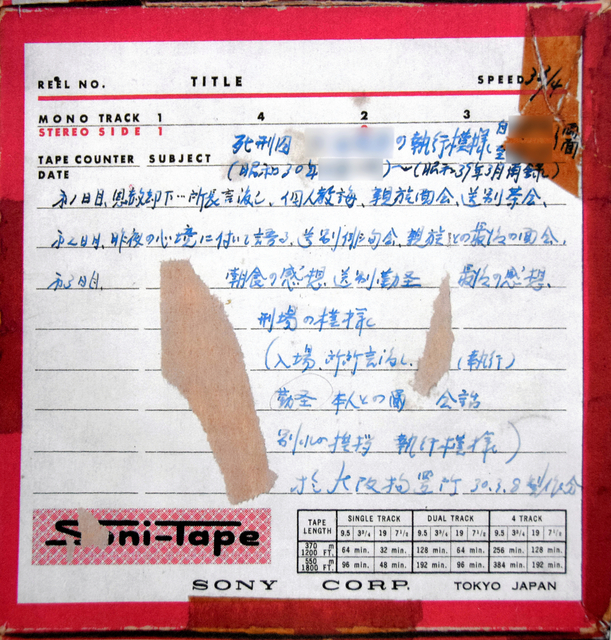 REEL NO. TITLE SPEED 3 3/4
MONO TRACK 1 4 2 3
STEREO SIDE 1
死刑囚 の執行模様
TAPE COUNTER SUBJECT
DATE
(昭和30年 )〜(昭和37年3月 録)
第1日目、恩赦却下…所長言渡し、個人教誨、親族面会、送別茶会、
第2日目、昨夜の心境に付いて語る、送別俳句会、親族との最後の面会、
第3日目、 朝食の感想、送別勤圣 最後の感想、
刑場の模様
(入場、所 言渡し、 (執行)
勤圣 本人との面 会話
別れの挨拶 執行模様)
於大阪拘置所 30.3.8 製作分
Soni-Tape
TAPE LENGTH SINGLE TRACK DUAL TRACK 4 TRACK
9.5 3¾ 19 7½ 9.5 3¾ 19 7½ 9.5 3¾ 19 7½
370 m 1200 FT. 64 min. 32 min. 128 min. 64 min. 256 min. 128 min.
550 m 1800 FT. 96 min. 48 min. 192 min. 96 min. 384 min. 192 min.
SONY CORP. TOKYO JAPAN